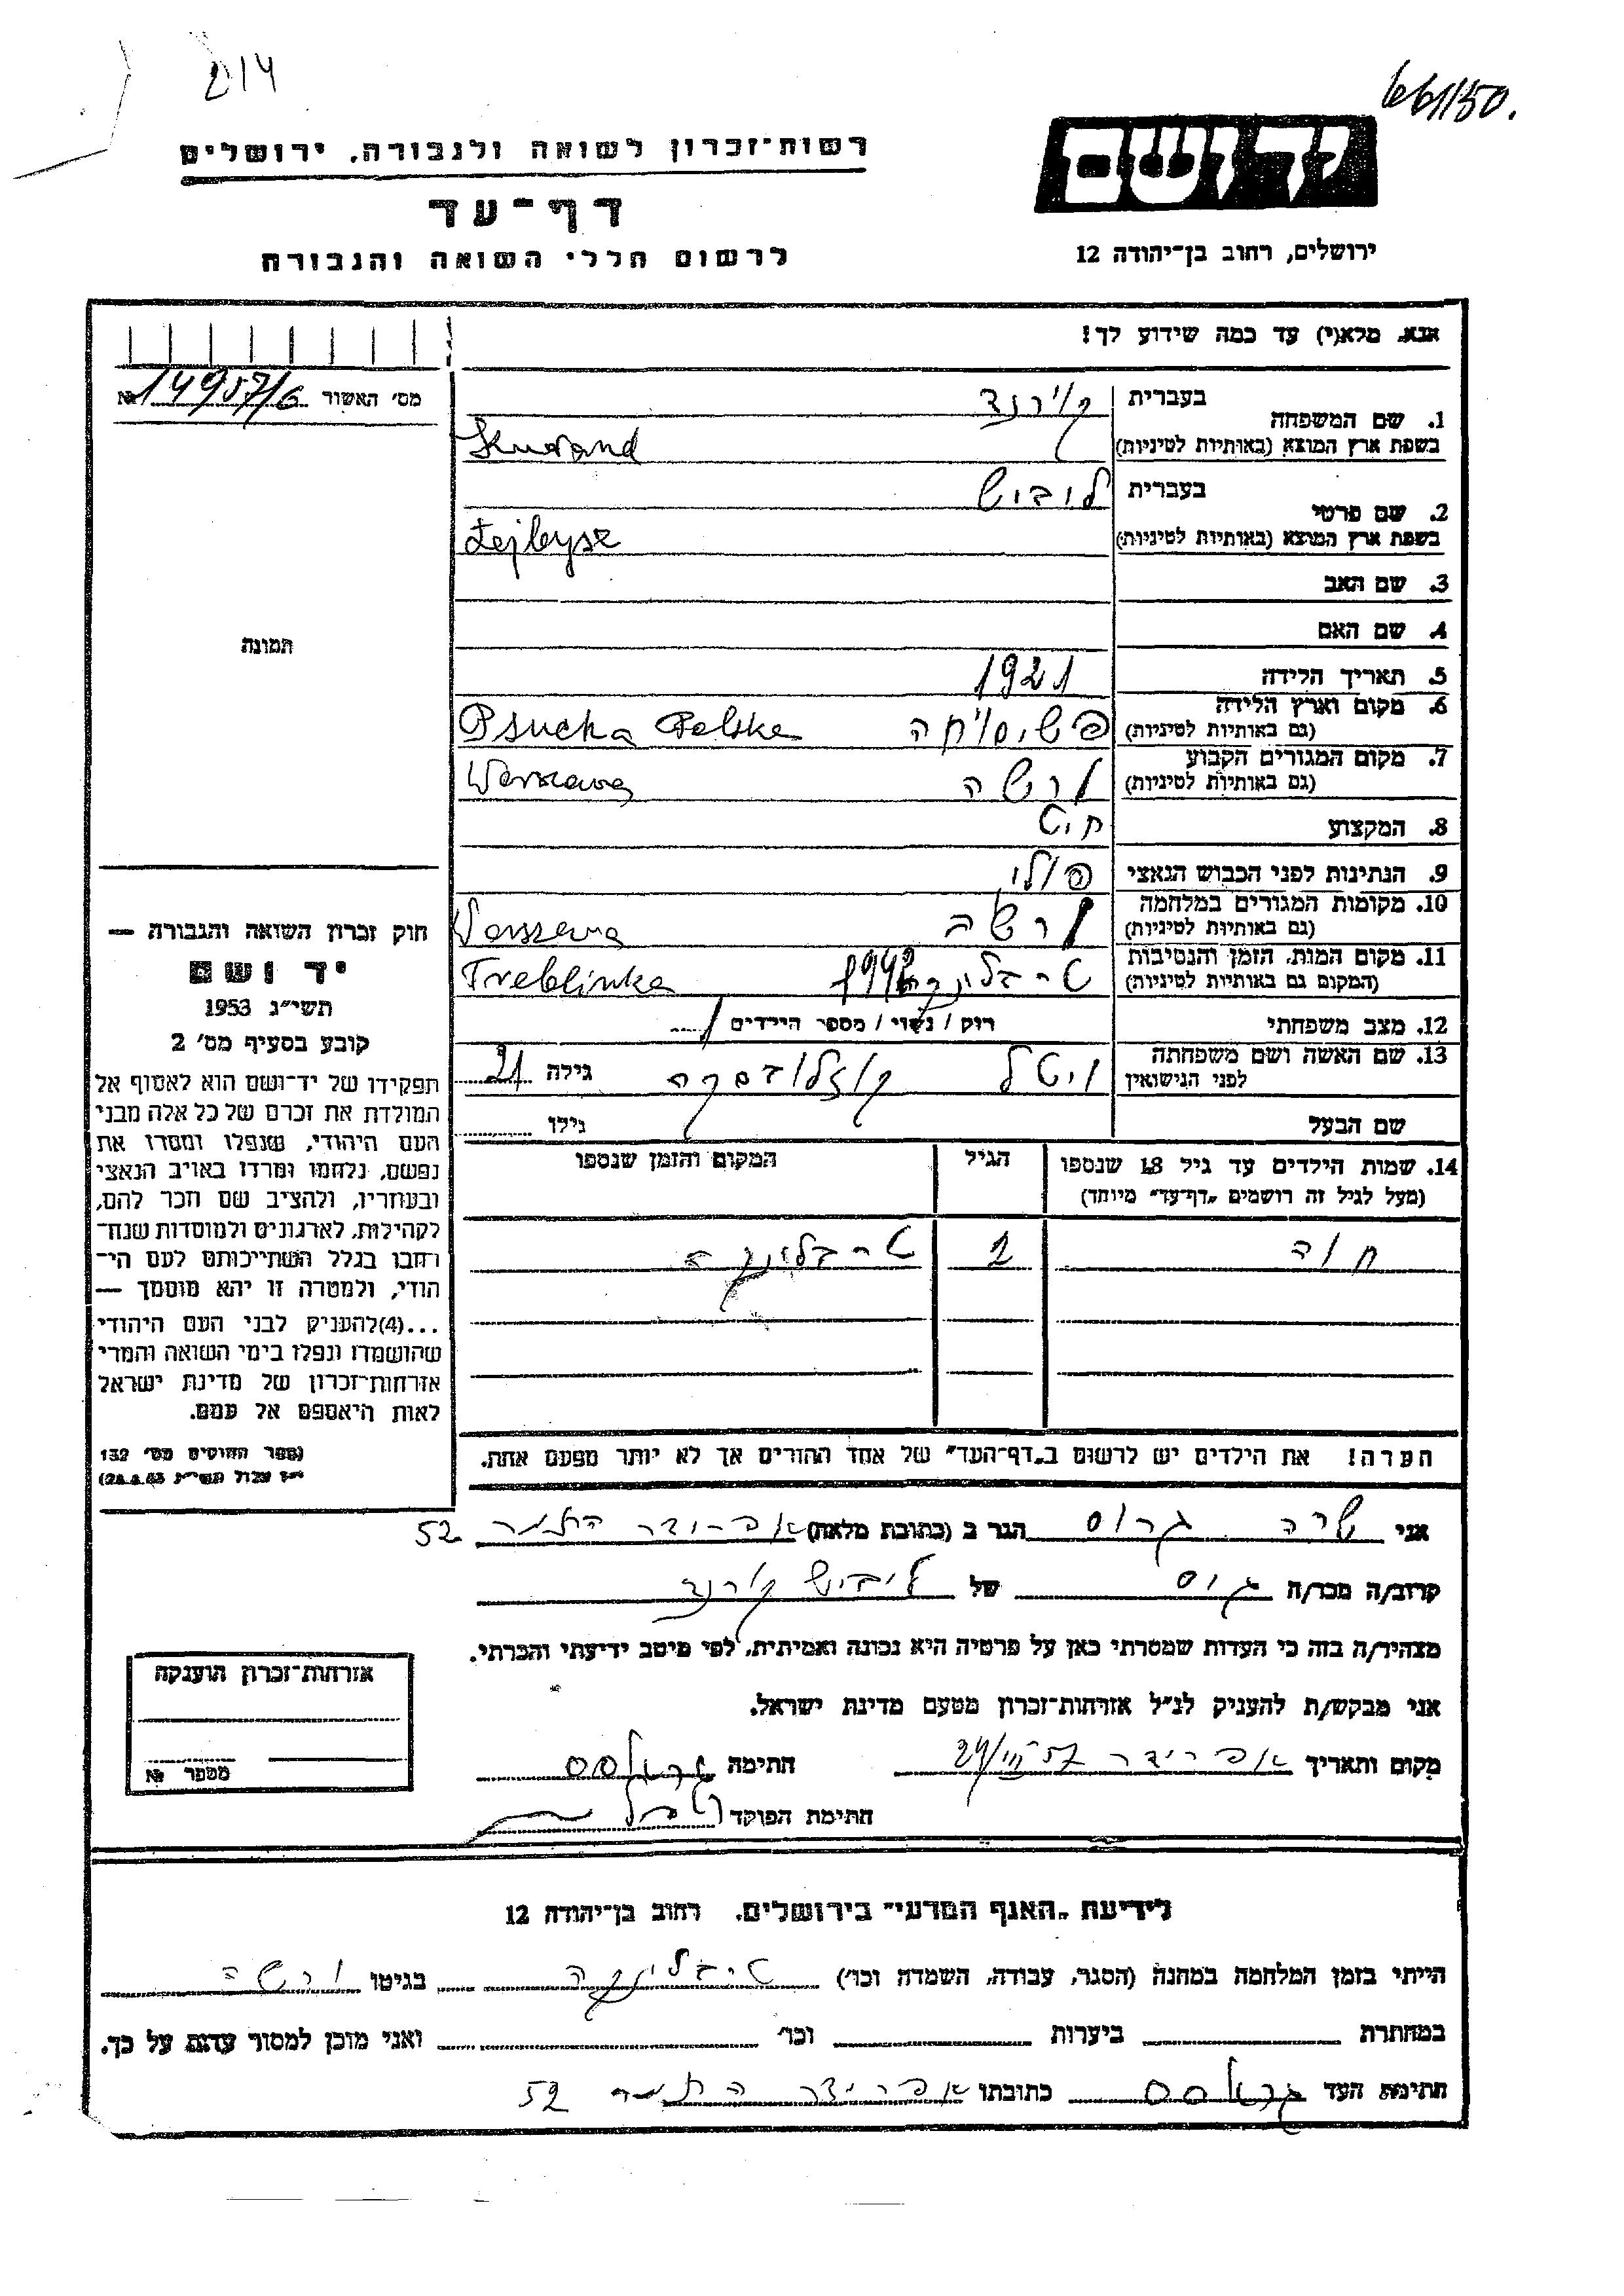 214
661/150.
רשות־זכרון לשואה ולגבורה, ירושלים
יד ושם
דף־עד
לרשום חללי השואה והגבורה
ירושלים, רחוב בן־יהודה 12
אנא, מלא(י) עד כמה שידוע לך!
מס' האשור 14957/6 №
1. שם המשפחה בעברית קורנד
בשפת ארץ המוצא (באותיות לטיניות) Kurand
2. שם פרטי בעברית ליביש
בשפת ארץ המוצא (באותיות לטיניות) Lejbysz
3. שם האב
4. שם האם
תמונה
5. תאריך הלידה 1921
6. מקום וארץ הלידה (גם באותיות לטיניות) פשיסוחה Psucha Polska
7. מקום המגורים הקבוע (גם באותיות לטיניות) ורשה Warszawa
8. המקצוע חיט
9. הנתינות לפני הכבוש הנאצי פולני
10. מקומות המגורים במלחמה (גם באותיות לטיניות) ורשה Warszawa
11. מקום המות, הזמן והנסיבות (המקום גם באותיות לטיניות) טרבלינקה Treblinka
12. מצב משפחתי רווק / נשוי / מספר הילדים 1
13. שם האשה ושם משפחתה לפני הנישואין ויטל גילה 21
שם הבעל גילו
14. שמות הילדים עד גיל 18 שנספו (מעל לגיל זה רושמים „דף־עד" מיוחד) הגיל המקום והזמן שנספו
חוה 2 טרבלינקה
הערה! את הילדים יש לרשום ב„דף־העד" של אחד ההורים אך לא יותר מפעם אחת.
חוק זכרון השואה והגבורה —
יד ושם
תשי"ג 1953
קובע בסעיף מס' 2
תפקידו של יד־ושם הוא לאסוף אל
המולדת את זכרם של כל אלה מבני
העם היהודי, שנפלו ומסרו את
נפשם, נלחמו ומרדו באויב הנאצי
ובעוזריו, ולהציב שם וזכר להם,
לקהילות, לארגונים ולמוסדות שנח־
רבו בגלל השתייכותם לעם הי־
הודי, ולמטרה זו יהא מוסמך —
...(4) להעניק לבני העם היהודי
שהושמדו ונפלו בימי השואה והמרי
אזרחות־זכרון של מדינת ישראל
לאות היאספם אל עמם.
(ספר החוקים מס' 132
י"ז אלול תשי"ג 28.8.53)
אני שרה גרוס הגר ב (כתובת מלאה) אפרידר התמר 52
קרוב/ה מכר/ה גיס של ליביש קורנד
מצהיר/ה בזה כי העדות שמסרתי כאן על פרטיה היא נכונה ואמיתית, לפי מיטב ידיעתי והכרתי.
אני מבקש/ת להעניק לנ"ל אזרחות־זכרון מטעם מדינת ישראל.
מקום ותאריך אפרידר 24/VII 57 חתימה
חתימת הפוקד
אזרחות־זכרון הוענקה
מספר №
לידיעת „האגף המדעי" בירושלים, רחוב בן־יהודה 12
הייתי בזמן המלחמה במחנה (הסגר, עבודה, השמדה וכו') טרבלינקה בגיטו ורשה
במחתרת ביערות וכו' ואני מוכן למסור עדות על כך.
חתימת העד כתובתו אפרידר התמר 52